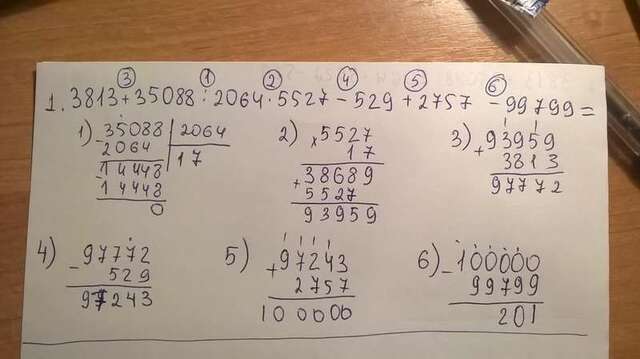 ③ ① ② ④ ⑤ ⑥
1. 3813+35088:2064·5527-529+2757-99799=
1) 35088 | 2064
- 2064 17
- 14448
14448
0
2) × 5527
17
+ 38689
5527
93959
3) + 93959
3813
97772
4) - 97772
529
97243
5) + 97243
2757
100000
6) - 100000
99799
201